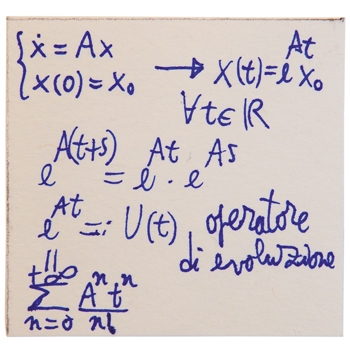 { ẋ = Ax
x(0) = x₀ → x(t) = e^{At} x₀
∀t∈ℝ
e^{A(t+s)} = e^{At} · e^{As}
e^{At} =: U(t) operatore
di evoluzione
||
∑_{n=0}^{+∞} Aⁿtⁿ/n!